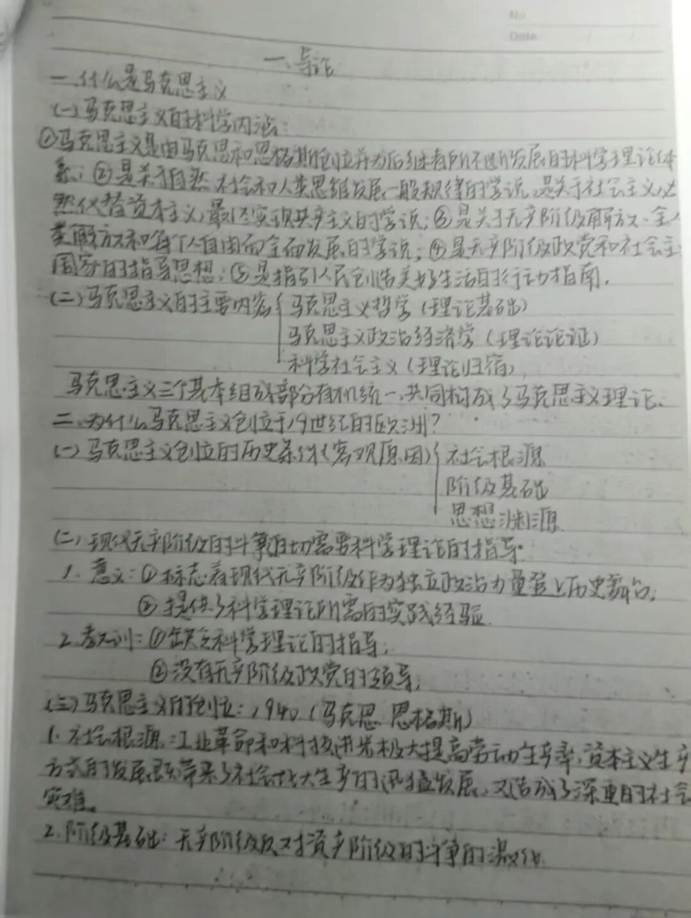 No.
Date
一、导论
一、什么是马克思主义
(一)马克思主义的科学内涵:
①马克思主义是由马克思和恩格斯创立并为后继者所不断发展的科学理论体
系;②是关于自然、社会和人类思维发展一般规律的学说,是关于社会主义必
然代替资本主义,最终实现共产主义的学说;③是关于无产阶级解放、全人
类解放和每个人自由而全面发展的学说;④是无产阶级政党和社会主
国家的指导思想;⑤是指引人民创造美好生活的行动指南.
(二)马克思主义的主要内容{马克思主义哲学(理论基础)
马克思主义政治经济学(理论论证)
科学社会主义(理论归宿)
马克思主义三个基本组成部分有机统一,共同构成了马克思主义理论.
二、为什么马克思主义创立于19世纪的欧洲?
(一)马克思主义创立的历史条件(客观原因){社会根源
阶级基础
思想渊源
(二)现代无产阶级的斗争迫切需要科学理论的指导
1. 意义:①标志着现代无产阶级作为独立政治力量登上历史舞台.
②提供了科学理论所需的实践经验
2. 教训:①缺乏科学理论的指导;
②没有无产阶级政党的领导.
(三)马克思主义的创立:1940.(马克思 恩格斯)
1. 社会根源:工业革命和科技进步极大提高劳动生产率,资本主义生产
方式的发展既带来了社会化大生产的迅猛发展,又造成了深重的社会
灾难.
2. 阶级基础:无产阶级反对资产阶级的斗争的激化